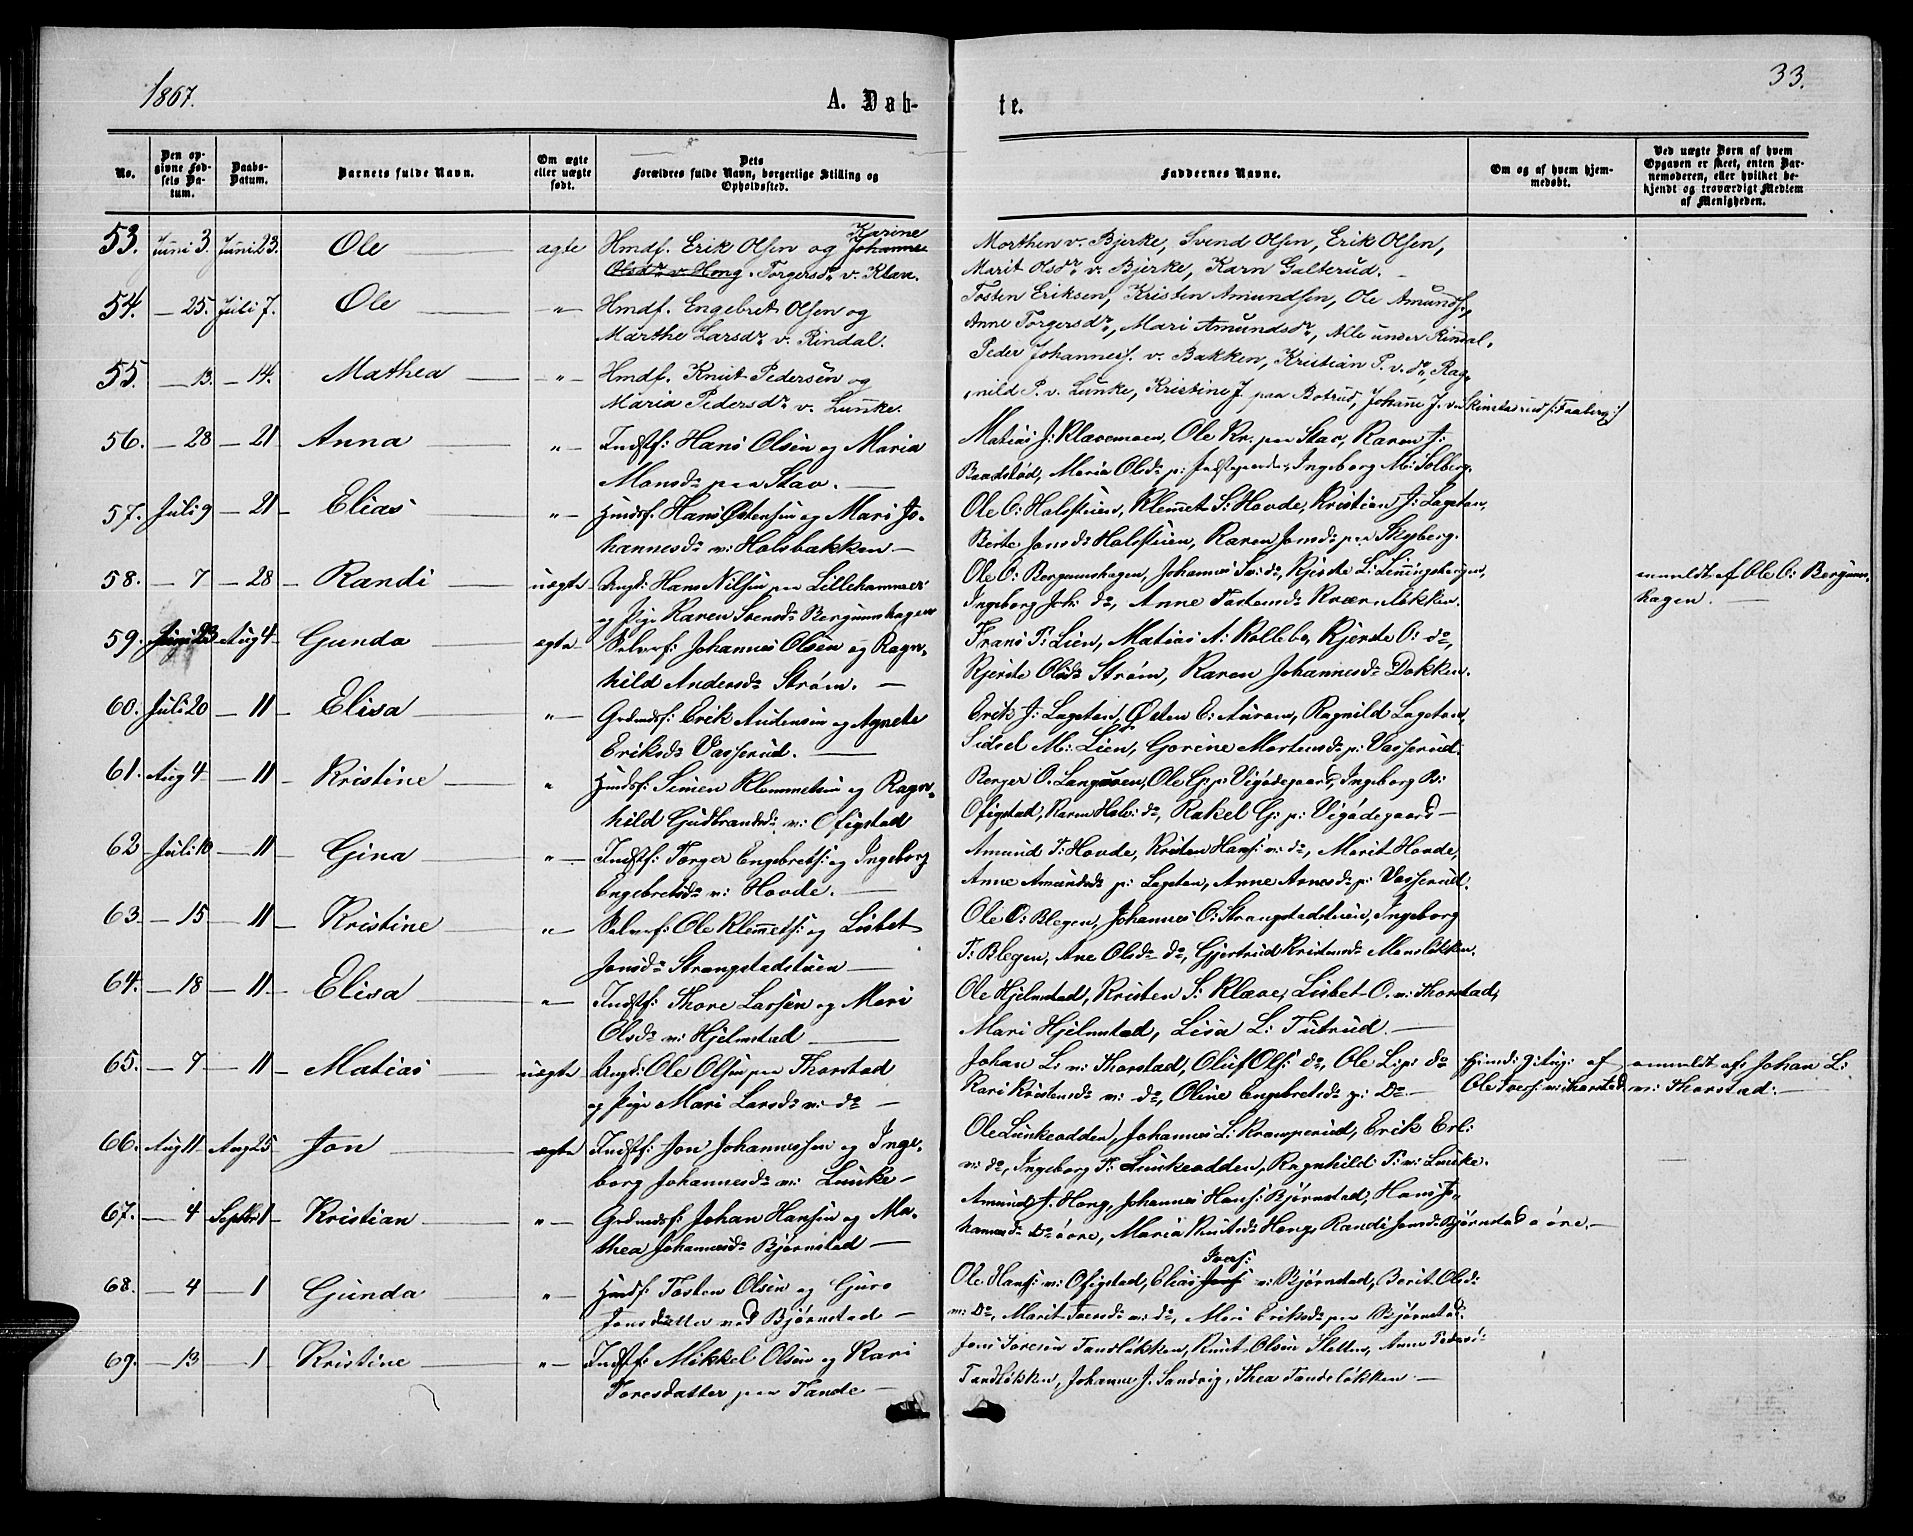 1867.
A. Døb-
te.
33.
No.
Den op-
givne Fød-
sels Da-
tum.
Daabs-
Datum.
Barnets fulde Navn.
Om ægte
eller uægte
født.
Dets
Forældres fulde Navn, borgerlige Stilling og
Opholdssted.
Faddernes Navne.
Om og af hvem hjem-
medøbt.
Ved uægte Børn af hvem
Opgaven er skeet, enten Bar-
nemoderen, eller hvilket be-
kjendt og troværdigt Medlem
af Menigheden.
Karine
53. Juni 3. Juni 23. Ole ægte Hmdf. Erik Olsen og Johanne
Olsdr v. Hong. Torgersdr v. Klæve.
Morthen v. Bjerke, Svend Olsen, Erik Olsen,
Marit Olsdr v. Bjerke, Karn Galterud.
54. — 25. Juli 7. Ole —"— Hmdf. Engebret Olsen og
Marthe Larsdr v. Rindal.
Tosten Eriksen, Kristen Amundsen, Ole Amunds.,
Anne Torgersdr, Mari Amundsdr, Alle under Rindal.
55. — 13. — 14. Mathea —"— Hmdf. Knut Pedersen og
Maria Pedersdr v. Lunke.
Peder Johannesf. v. Bakken, Kristian P. v. do, Rag-
nild P. v. Lunke, Kristine J. paa Botrud, Johane J. v. Rinstarud /:Faaberg:/
56. — 28 — 21 Anna "— Indstf: Hans Olsen og Maria
Monsdr paa Stav.
Matias J: Klævemoen, Ole Kr. paa Stav, Karen J:
Baadstød, Maria Olsdr p: Ingeborg M: Solberg.
57. Juli 9 — 21 Elias "— Hmdsf. Hans Østensen og Mari Jo-
hannesdr v: Holsbakken.
Ole O: Holstuen, Klemet S: Hovde, Kristian J: Lageton,
Berte Jonsdr Holstuen, Karen Jonsdr paa Skyberg.
58. — 7 — 28 Randi uægte Ungk: Hans Nilsen paa Lillehammer
og Pige Karen Svensdr Bergumshagen
Ole O: Bergumshagen, Johannes Sv: do, Kjerste L: Linningsbergen,
Ingeborg Joh: do, Anne Tostensdr Kværnløkken.
anmeldt af Ole O: Bergums-
hagen.
59. Juni 23 Aug 4 Gunda ægte Selveif: Johannes Olsen og Ragn-
hild Andersdr Strøm.
Frans P: Lien, Matias A: Kolleba, Kjerste O: do,
Kjerste Olsdr Strøm, Karen Johannesdr Dokken.
60. Juli 20 — 11 Elisa "— Grdmdsf: Erik Audensen og Agnete
Eriksdr Vasserud.
Erik J: Lageton, Østen E: Auron, Ragnild Lageton,
Sidsel M: Lien, Gorine Mortensdr p: Vasserud.
61. Aug 4 — 11 Kristine " Hmdsf: Simen Klemmetsen og Ragn-
hild Gudbrandsdr v: Ofigstad
Borger O. Langsveen, Ole G: p: Vigødegaard, Ingeborg B:
Ofigstad, Karen Halv: do, Rakel G: p: Vigødegaard
62 Juli 10 — 11 Gina "— Indstf: Torger Engebrets: og Ingeborg
Engebretsdr v: Hovde.
Amund T: Hovde, Kristen Hans: v: do, Marit Hovde,
Anne Amundsdr p: Lageton, Anne Arnesdr p: Vasserud.
63. — 15 — 11 Kristine "— Selveif: Ole Klemets: og Lisbet
Jonsdr Strangstadstuen
Ole O: Blegen, Johannes O: Strangstadstuen, Ingeborg
T: Blegen, Ane Olsdr do, Gjertrud Kristensdr Monsløkken.
64. — 18 — 11 Elisa "— Indstf: Thore Larsen og Mari
Olsdr v: Hjelmstad
Ole Hjelmstad, Kristen S: Klæve, Lisbet O. v: Thorstad,
Mari Hjelmstad, Lisa L: Tutrud.
65. — 7 — 11 Matias uægte Ungk: Ole Olsen paa Thorstad
og Pige Mari Larsdr v: do
Johan L: v: Thorstad, Oluf Ols: do, Ole L: p: do
Kari Kristensdr v: do, Oline Engebretsdr p: Do.
Ole Svers: v: Thorstad
anmeldt af: Johan L:
v: Thorstad.
66. Aug 11 Aug 25 Jon ægte Indstf: Jon Johannessen og Inge-
borg Johannesdr v: Lunke
Ole Lunkeodden, Johannes L: Kramperud, Erik Erl:
v: do, Ingeborg T: Lunkeodden, Ragnhild P: v: Lunke.
67. — 4 Septbr 1 Kristian "— Grdmdsf: Johan Hansen og Ma-
thea Johannesdr Bjørnstad
Amund J. Hong, Johannes Hans: Bjørnstad, Hans Jo-
hannesdr do øvre, Maria Knutsdr Hong, Randi Jonsdr Bjørnstad øvre.
68. — 4 — 1 Gunda "— Hmdsf: Tosten Olsen og Guro
Jonsdatter ved Bjørnstad
Ivers:
Ole Hans: v: Ofigstad, Elias Jons: v: Bjørnstad, Berit Olsdr
v: Do, Marit Toresdr v: do, Mari Eriksdr paa Bjørnstad.
69. — 13 — 1 Kristine "— Indstf: Mikkel Olsen og Kari
Toresdatter paa Tande
Jens Toresen Tandløkken, Knut Olsen Sletten, Anne Pedersdr
Tandløkken, Johanne J. Sandvig, Thea Tandeløkken.